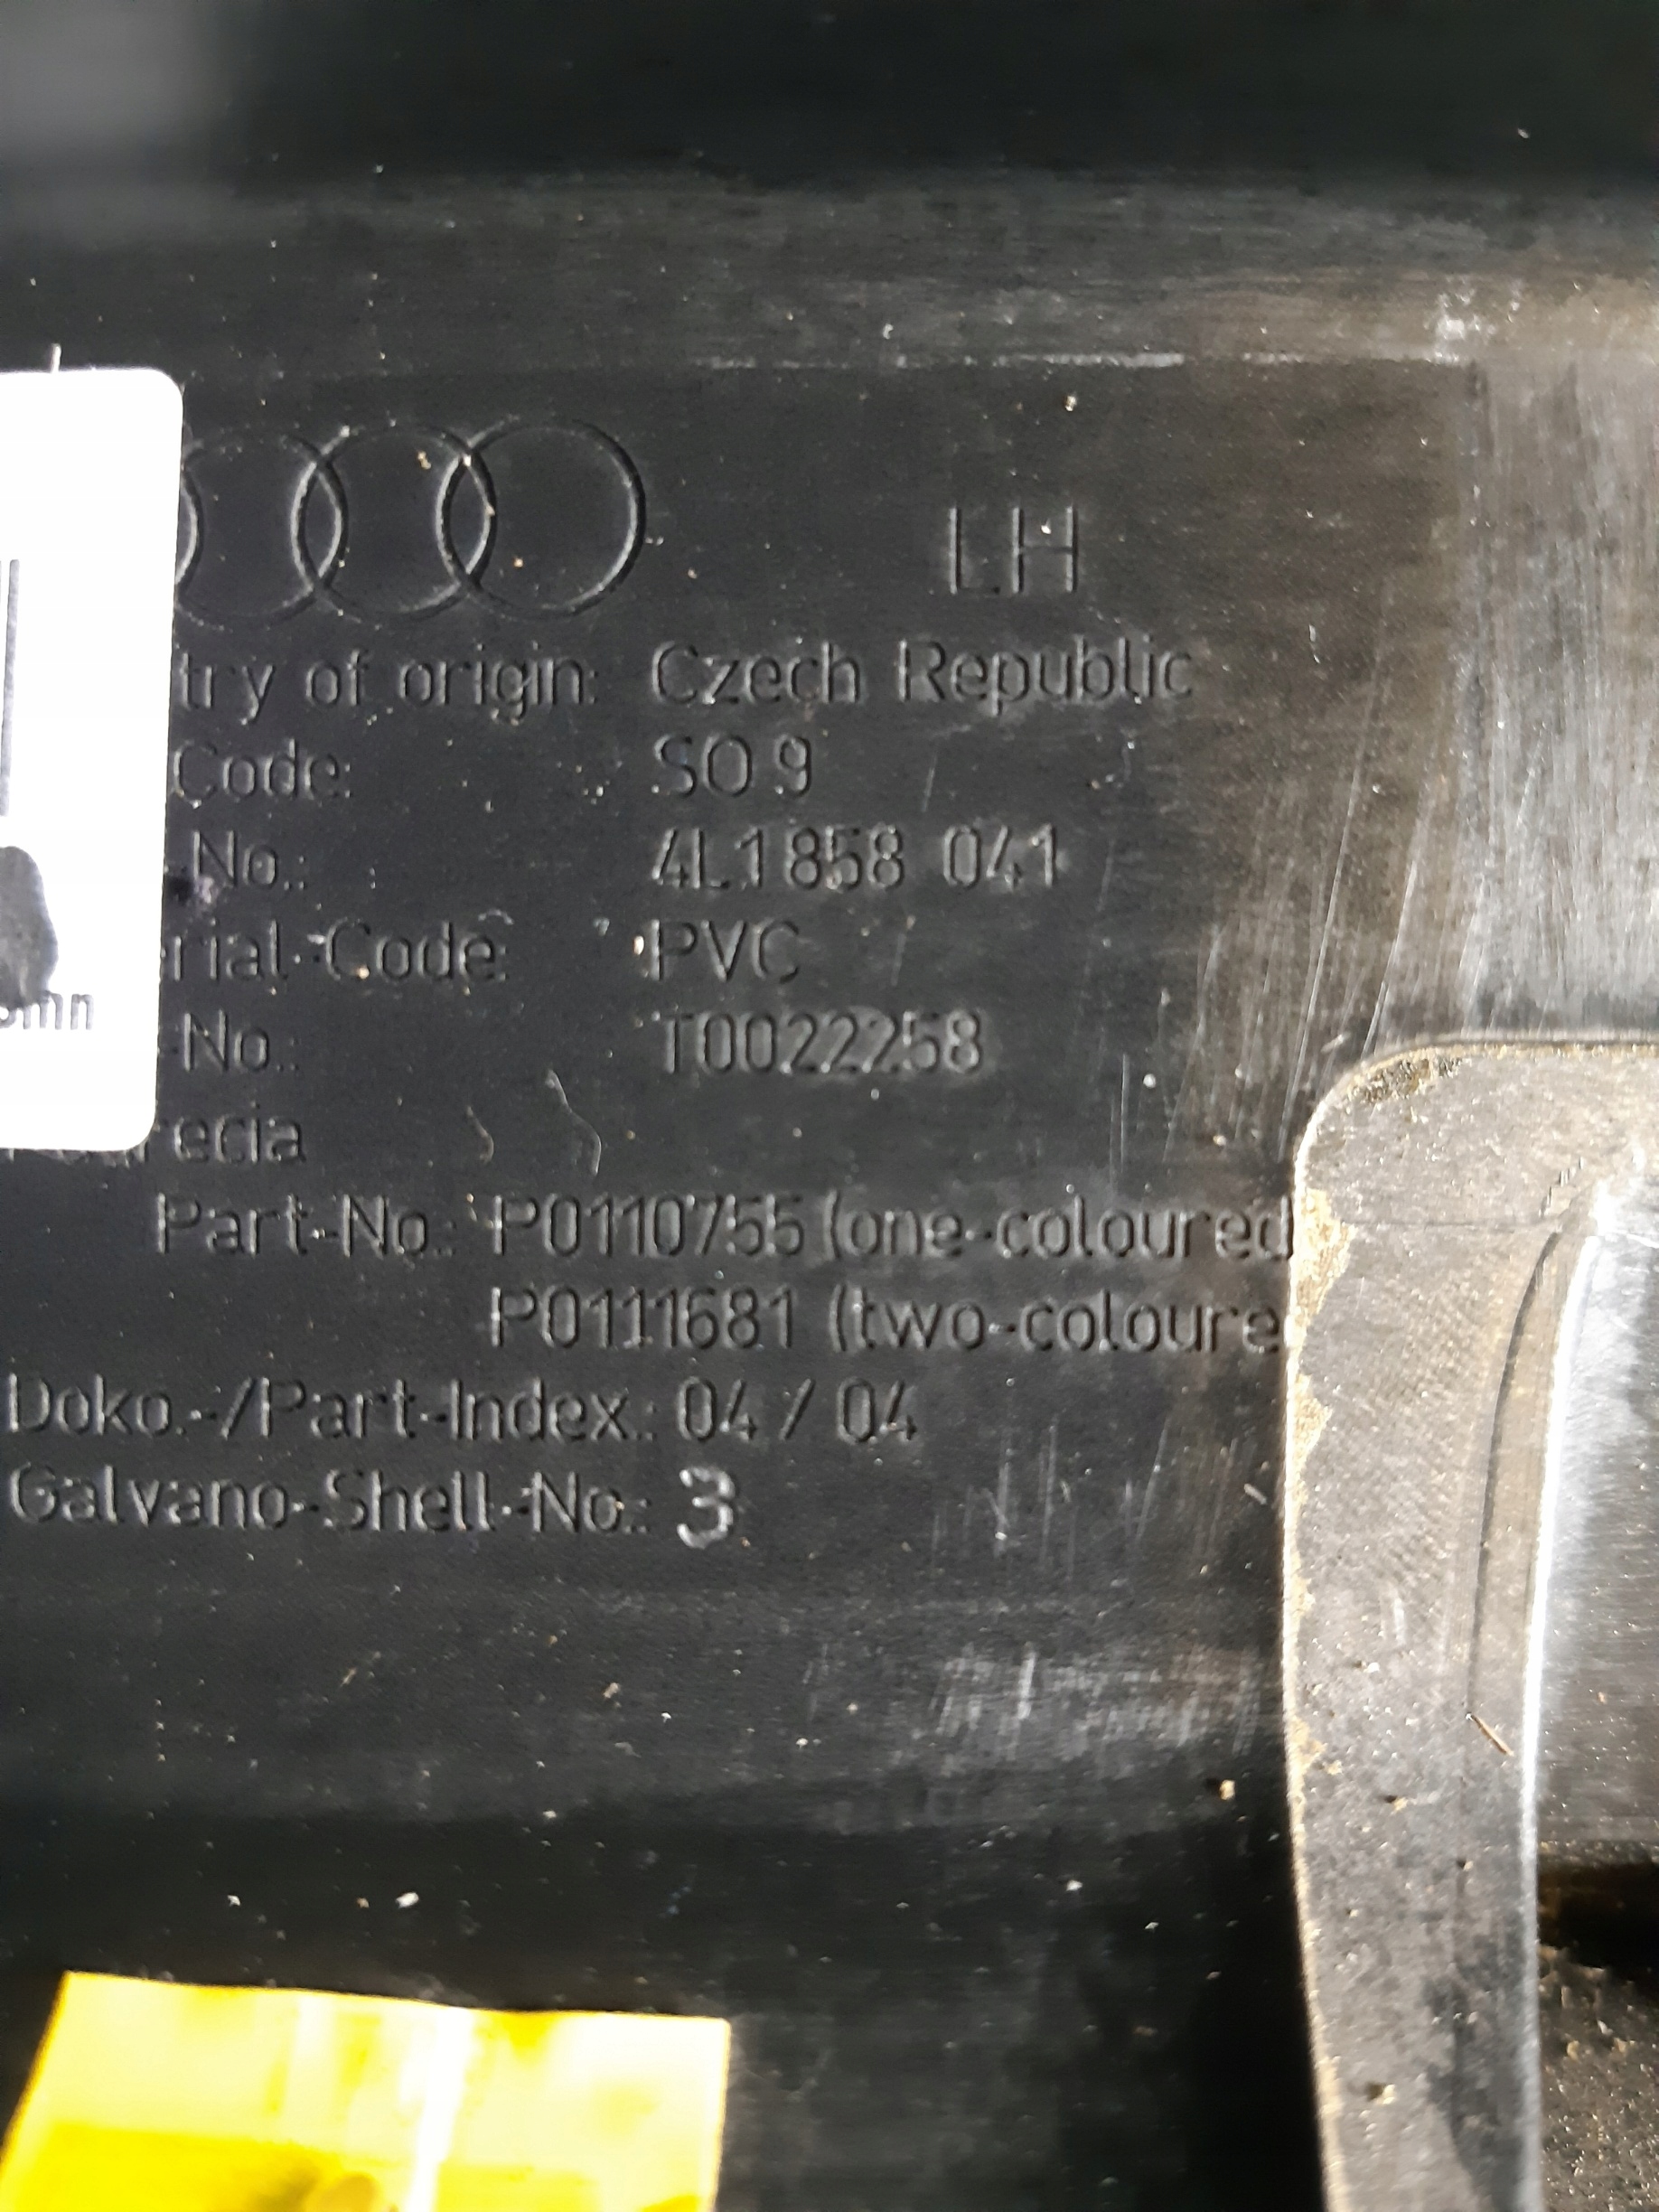 LH
try of origin: Czech Republic
Code: SO 9
-No.: 4L1 858 041
rial-Code: PVC
-No.: T0022258
recia
Part-No.: P0110755 (one-coloured
P0111681 (two-coloure
Doko.-/Part-Index.: 04 / 04
Galvano-Shell-No.: 3